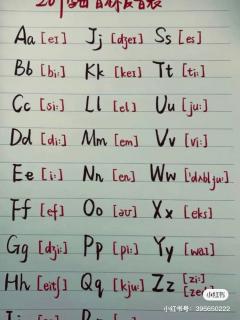 Aa [eɪ] Jj [dʒeɪ] Ss [es]
Bb [bi:] Kk [keɪ] Tt [ti:]
Cc [si:] Ll [el] Uu [ju:]
Dd [di:] Mm [em] Vv [vi:]
Ee [i:] Nn [en] Ww ['dʌblju:]
Ff [ef] Oo [əʊ] Xx [eks]
Gg [dʒi:] Pp [pi:] Yy [waɪ]
Hh [eɪtʃ] Qq [kju:] Zz [zi:]
[zed]
小红书
小红书号:395650222